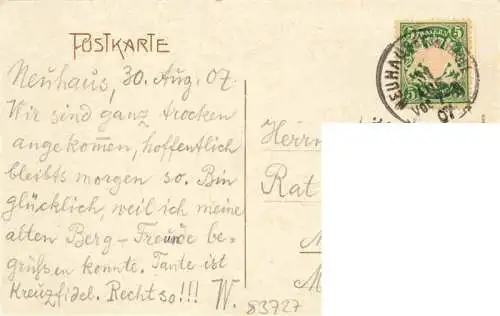 POSTKARTE
BAYERN
5 5
NEUHAU
VOR
07
Neuhaus, 30. Aug. 07.
Wir sind ganz trocken
angekommen, hoffentlich
bleibts morgen so. Bin
glücklich, weil ich meine
alten Berg-Freunde be=
grüßen konnte. Tante ist
Kreuzfidel. Recht so!!! W.
Herrn
Rat
83727